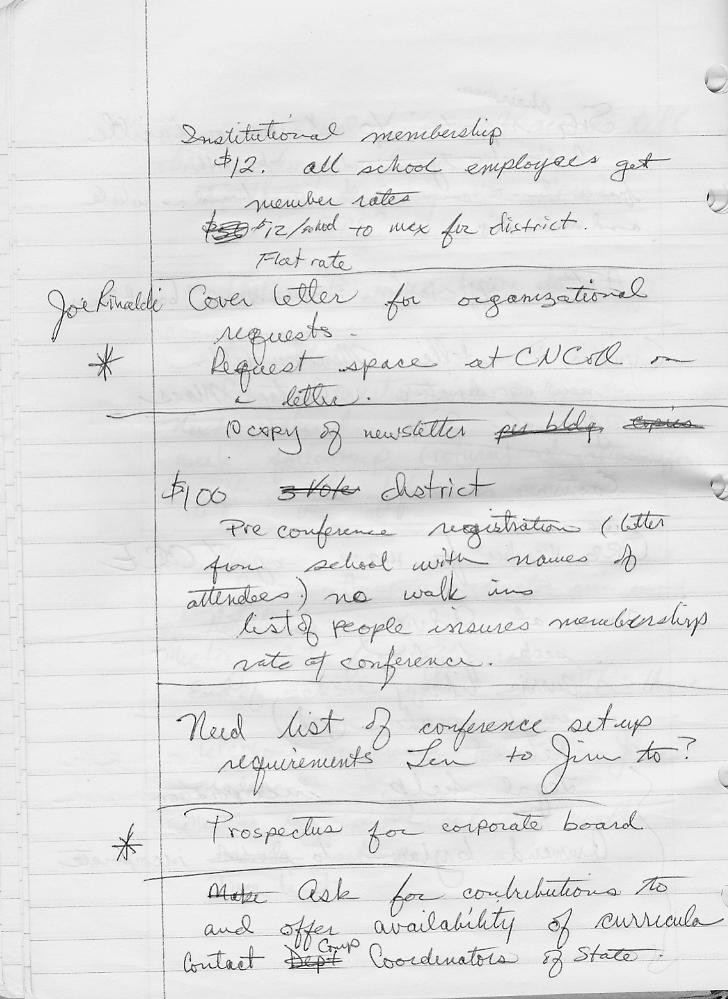 Institutional membership
$12. all school employees get
member rates
$12/school to max for district.
Flat rate
Joe Rinaldi Cover letter for organizational
requests.
* Request space at on
letter.
copy of newsletter per bldg. copies
$100 district
Pre conference registration (letter
from school with names of
attendees) no walk ins
list of people insures membership
rate at conference.
Need list of conference set up
requirements Len to Jim to?
* Prospectus for corporate board
Make Ask for contributions to
and offer availability of curricula
Comp
Contact Dept Coordinators of State.